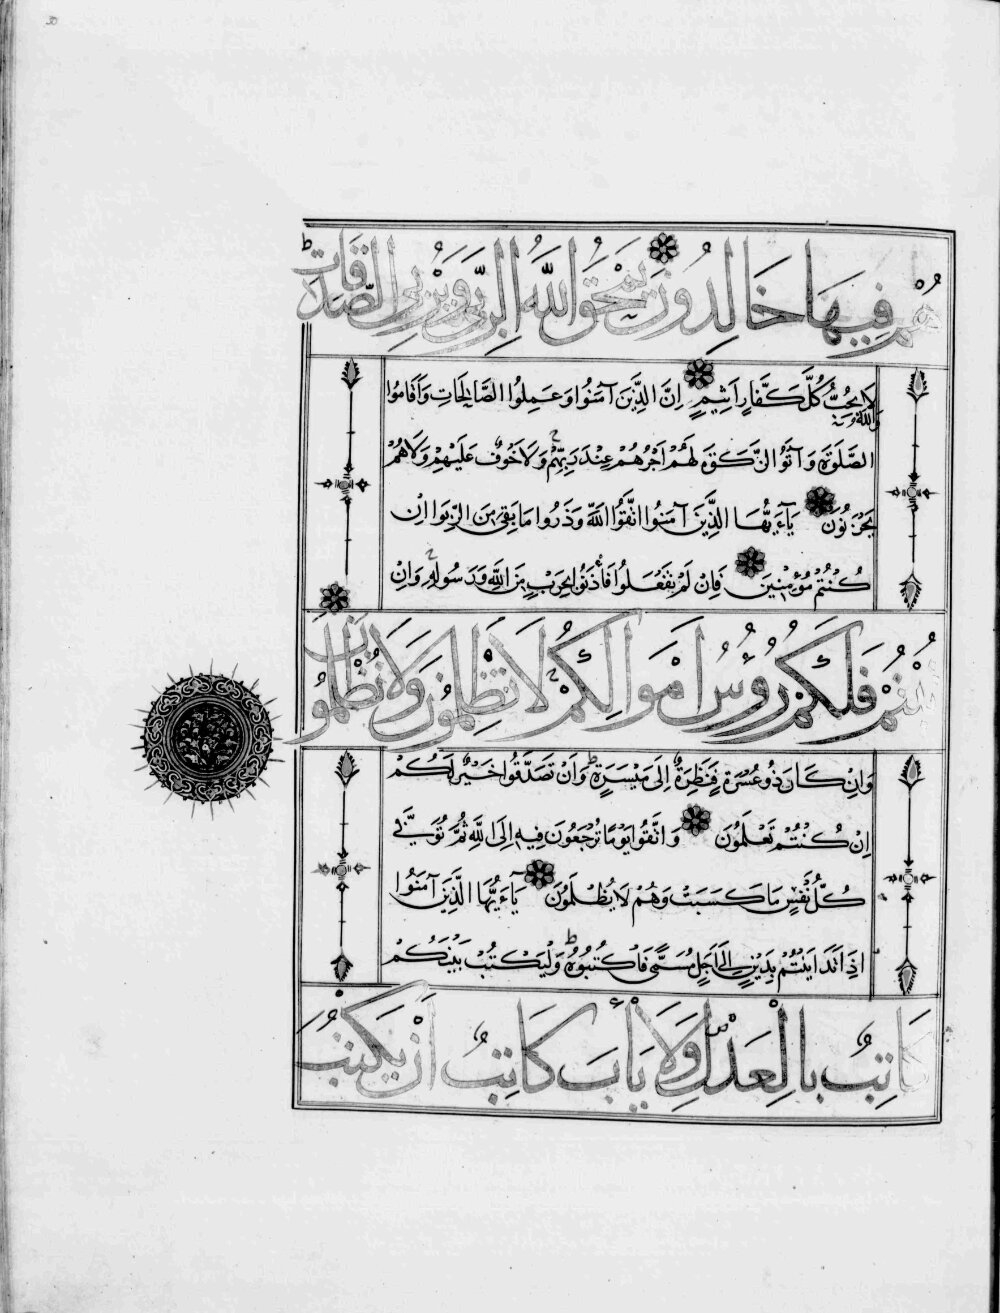 30
هُمْ فِيهَا خَالِدُونَ يَمْحَقُ اللَّهُ الرِّبَوا وَيُرْبِي الصَّدَقَاتِ ط
وَاللَّهُ لَا يُحِبُّ كُلَّ كَفَّارٍ أَثِيمٍ إِنَّ الَّذِينَ آمَنُوا وَعَمِلُوا الصَّالِحَاتِ وَأَقَامُوا
الصَّلَوٰةَ وَآتَوُا الزَّكَوٰةَ لَهُمْ أَجْرُهُمْ عِنْدَ رَبِّهِمْ ج وَلَا خَوْفٌ عَلَيْهِمْ وَلَا هُمْ
يَحْزَنُونَ يَآءَيُّهَا الَّذِينَ آمَنُوا اتَّقُوا اللَّهَ وَذَرُوا مَا بَقِيَ مِنَ الرِّبَوا إِنْ
كُنْتُمْ مُؤْمِنِينَ فَإِنْ لَمْ تَفْعَلُوا فَأْذَنُوا بِحَرْبٍ مِنَ اللَّهِ وَرَسُولِهِ ج وَإِنْ
تُبْتُمْ فَلَكُمْ رُؤُسُ أَمْوَالِكُمْ ج لَا تَظْلِمُونَ وَلَا تُظْلَمُونَ
وَإِنْ كَانَ ذُو عُسْرَةٍ فَنَظِرَةٌ إِلَى مَيْسَرَةٍ ط وَأَنْ تَصَدَّقُوا خَيْرٌ لَكُمْ
إِنْ كُنْتُمْ تَعْلَمُونَ وَاتَّقُوا يَوْمًا تُرْجَعُونَ فِيهِ إِلَى اللَّهِ ثُمَّ تُوَفَّى
كُلُّ نَفْسٍ مَا كَسَبَتْ وَهُمْ لَا يُظْلَمُونَ يَآءَيُّهَا الَّذِينَ آمَنُوا
إِذَا تَدَايَنْتُمْ بِدَيْنٍ إِلَى أَجَلٍ مُسَمًّى فَاكْتُبُوهُ ط وَلْيَكْتُبْ بَيْنَكُمْ
كَاتِبٌ بِالْعَدْلِ وَلَا يَأْبَ كَاتِبٌ أَنْ يَكْتُبَ